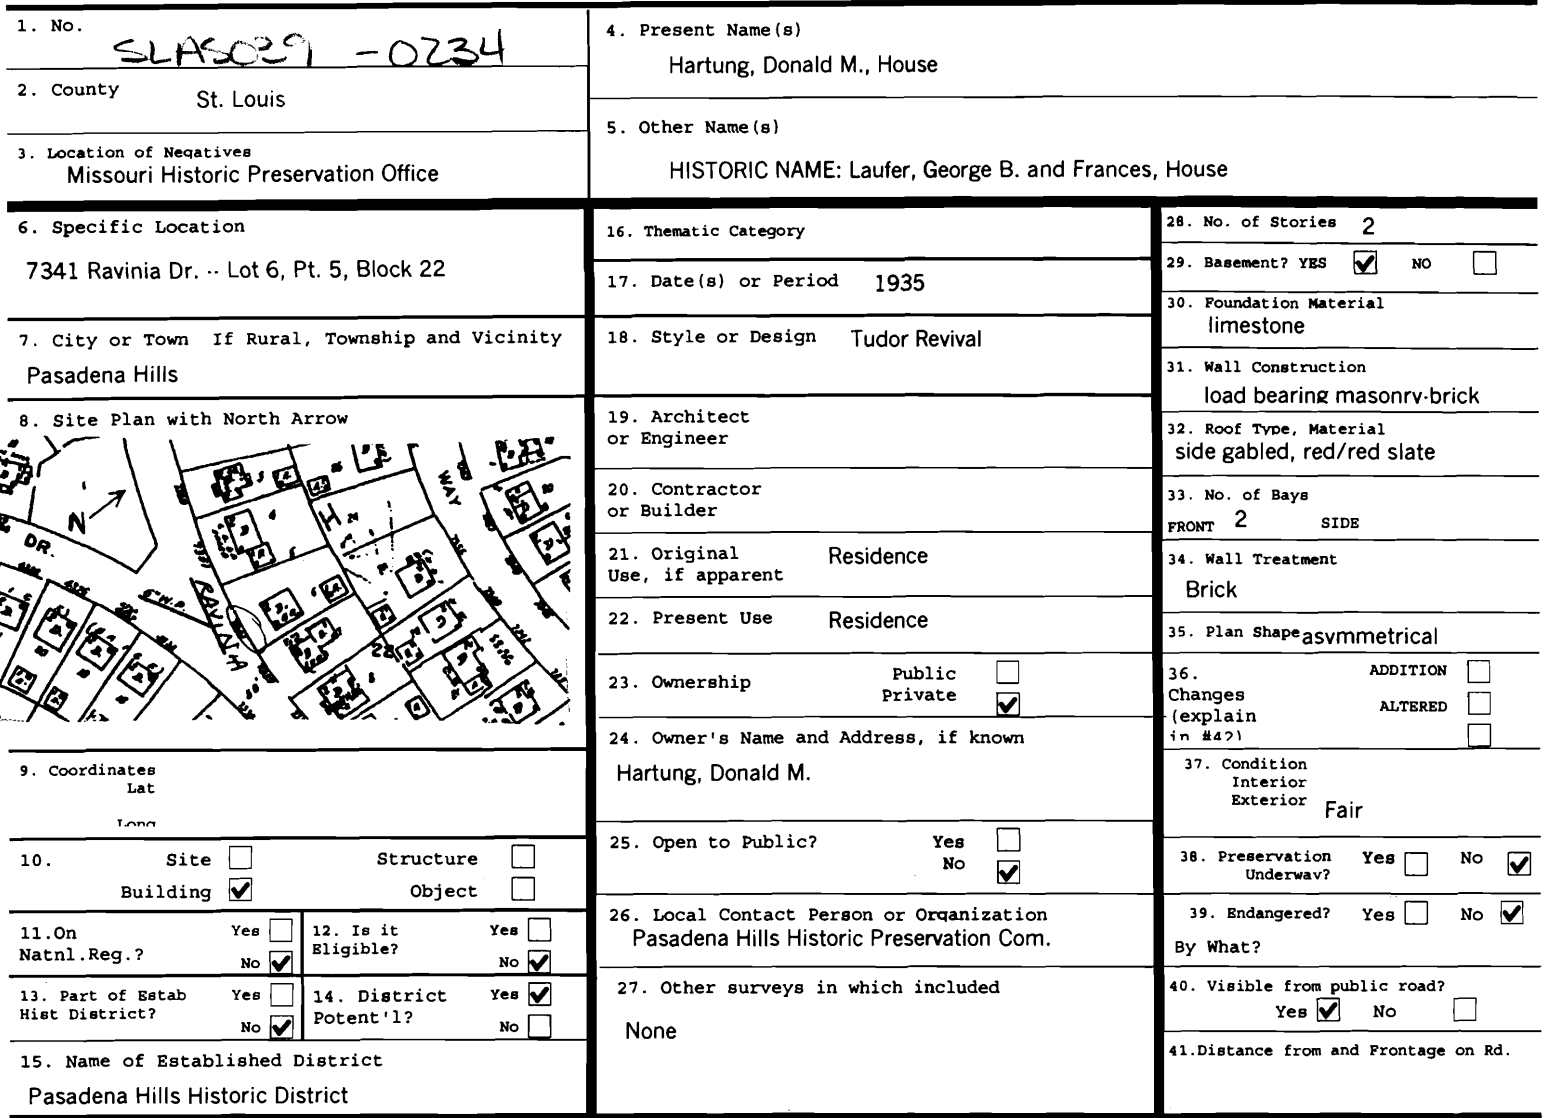 1. No.
SLAS029 -0234
2. County
St. Louis
3. Location of Negatives
Missouri Historic Preservation Office
4. Present Name(s)
Hartung, Donald M., House
5. Other Name(s)
HISTORIC NAME: Laufer, George B. and Frances, House
6. Specific Location
7341 Ravinia Dr. -- Lot 6, Pt. 5, Block 22
7. City or Town If Rural, Township and Vicinity
Pasadena Hills
8. Site Plan with North Arrow
N
DR.
RAVINIA
WAY
22
9. Coordinates
Lat
Long
10.
Site
Structure
Building ✓
Object
11.On
Natnl.Reg.?
Yes
No ✓
12. Is it
Eligible?
Yes
No ✓
13. Part of Estab
Hist District?
Yes
No ✓
14. District
Potent'l?
Yes ✓
No
15. Name of Established District
Pasadena Hills Historic District
16. Thematic Category
17. Date(s) or Period 1935
18. Style or Design Tudor Revival
19. Architect
or Engineer
20. Contractor
or Builder
21. Original
Use, if apparent
Residence
22. Present Use Residence
23. Ownership
Public
Private ✓
24. Owner's Name and Address, if known
Hartung, Donald M.
25. Open to Public?
Yes
No ✓
26. Local Contact Person or Organization
Pasadena Hills Historic Preservation Com.
27. Other surveys in which included
None
28. No. of Stories 2
29. Basement? YES ✓ NO
30. Foundation Material
limestone
31. Wall Construction
load bearing masonry-brick
32. Roof Type, Material
side gabled, red/red slate
33. No. of Bays
FRONT 2 SIDE
34. Wall Treatment
Brick
35. Plan Shape asymmetrical
36.
Changes
(explain
in #42)
ADDITION
ALTERED
37. Condition
Interior
Exterior Fair
38. Preservation
Underway?
Yes No ✓
39. Endangered? Yes No ✓
By What?
40. Visible from public road?
Yes ✓ No
41.Distance from and Frontage on Rd.